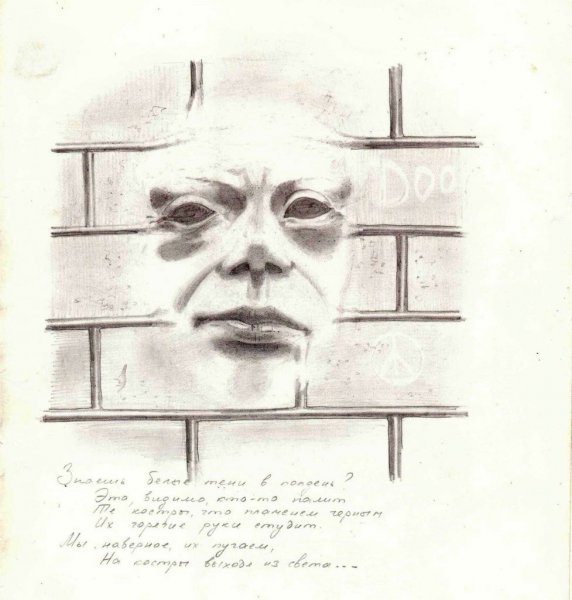 Doo
Знаешь белые тени в полдень?
Это, видимо, кто-то палит
Те костры, что пламенем черным
Их горение руки студит.
Мы, наверное, их пугаем,
На костры выходя из света...